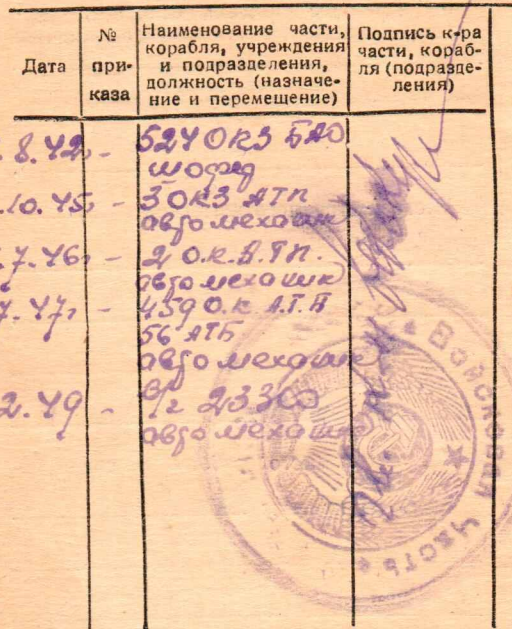 Дата
№ при-каза
Наименование части,
корабля, учреждения
и подразделения,
должность (назначе-
ние и перемещение)
Подпись к-ра
части, кораб-
ля (подразде-
ления)
.8.42. - 524 ОКЗ БАО
шофер
.10.45. - 3 ОКЗ АТП
автомеханик
.7.46. - 2 О.К.А.ТП.
автомеханик
7.47г - 459 О.К. А.Т.П
56 АТБ
автомеханик
2.49 - в/г 23360
автомеханик
Войсковая часть